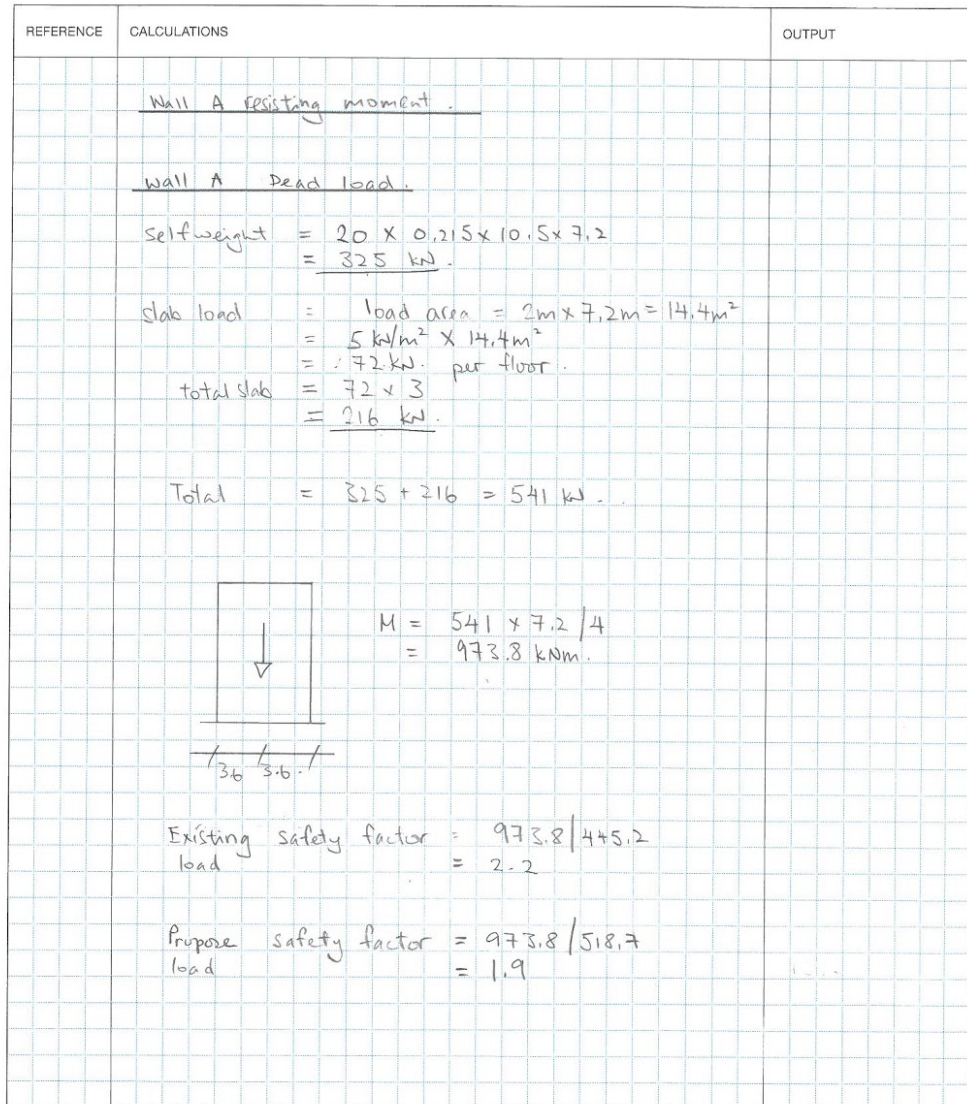 REFERENCE CALCULATIONS OUTPUT
Wall A resisting moment.
Wall A Dead load.
Selfweight = 20 x 0.215 x 10.5 x 7.2
= 325 kN.
slab load = load area = 2m x 7.2m = 14.4m²
= 5 kN/m² x 14.4m²
= 72 kN. per floor.
total slab = 72 x 3
= 216 kN.
Total = 325 + 216 = 541 kN.
M = 541 x 7.2/4
= 973.8 kNm.
3.6 3.6
Existing safety factor = 973.8/445.2
load = 2.2
Propose safety factor = 973.8/518.7
load = 1.9